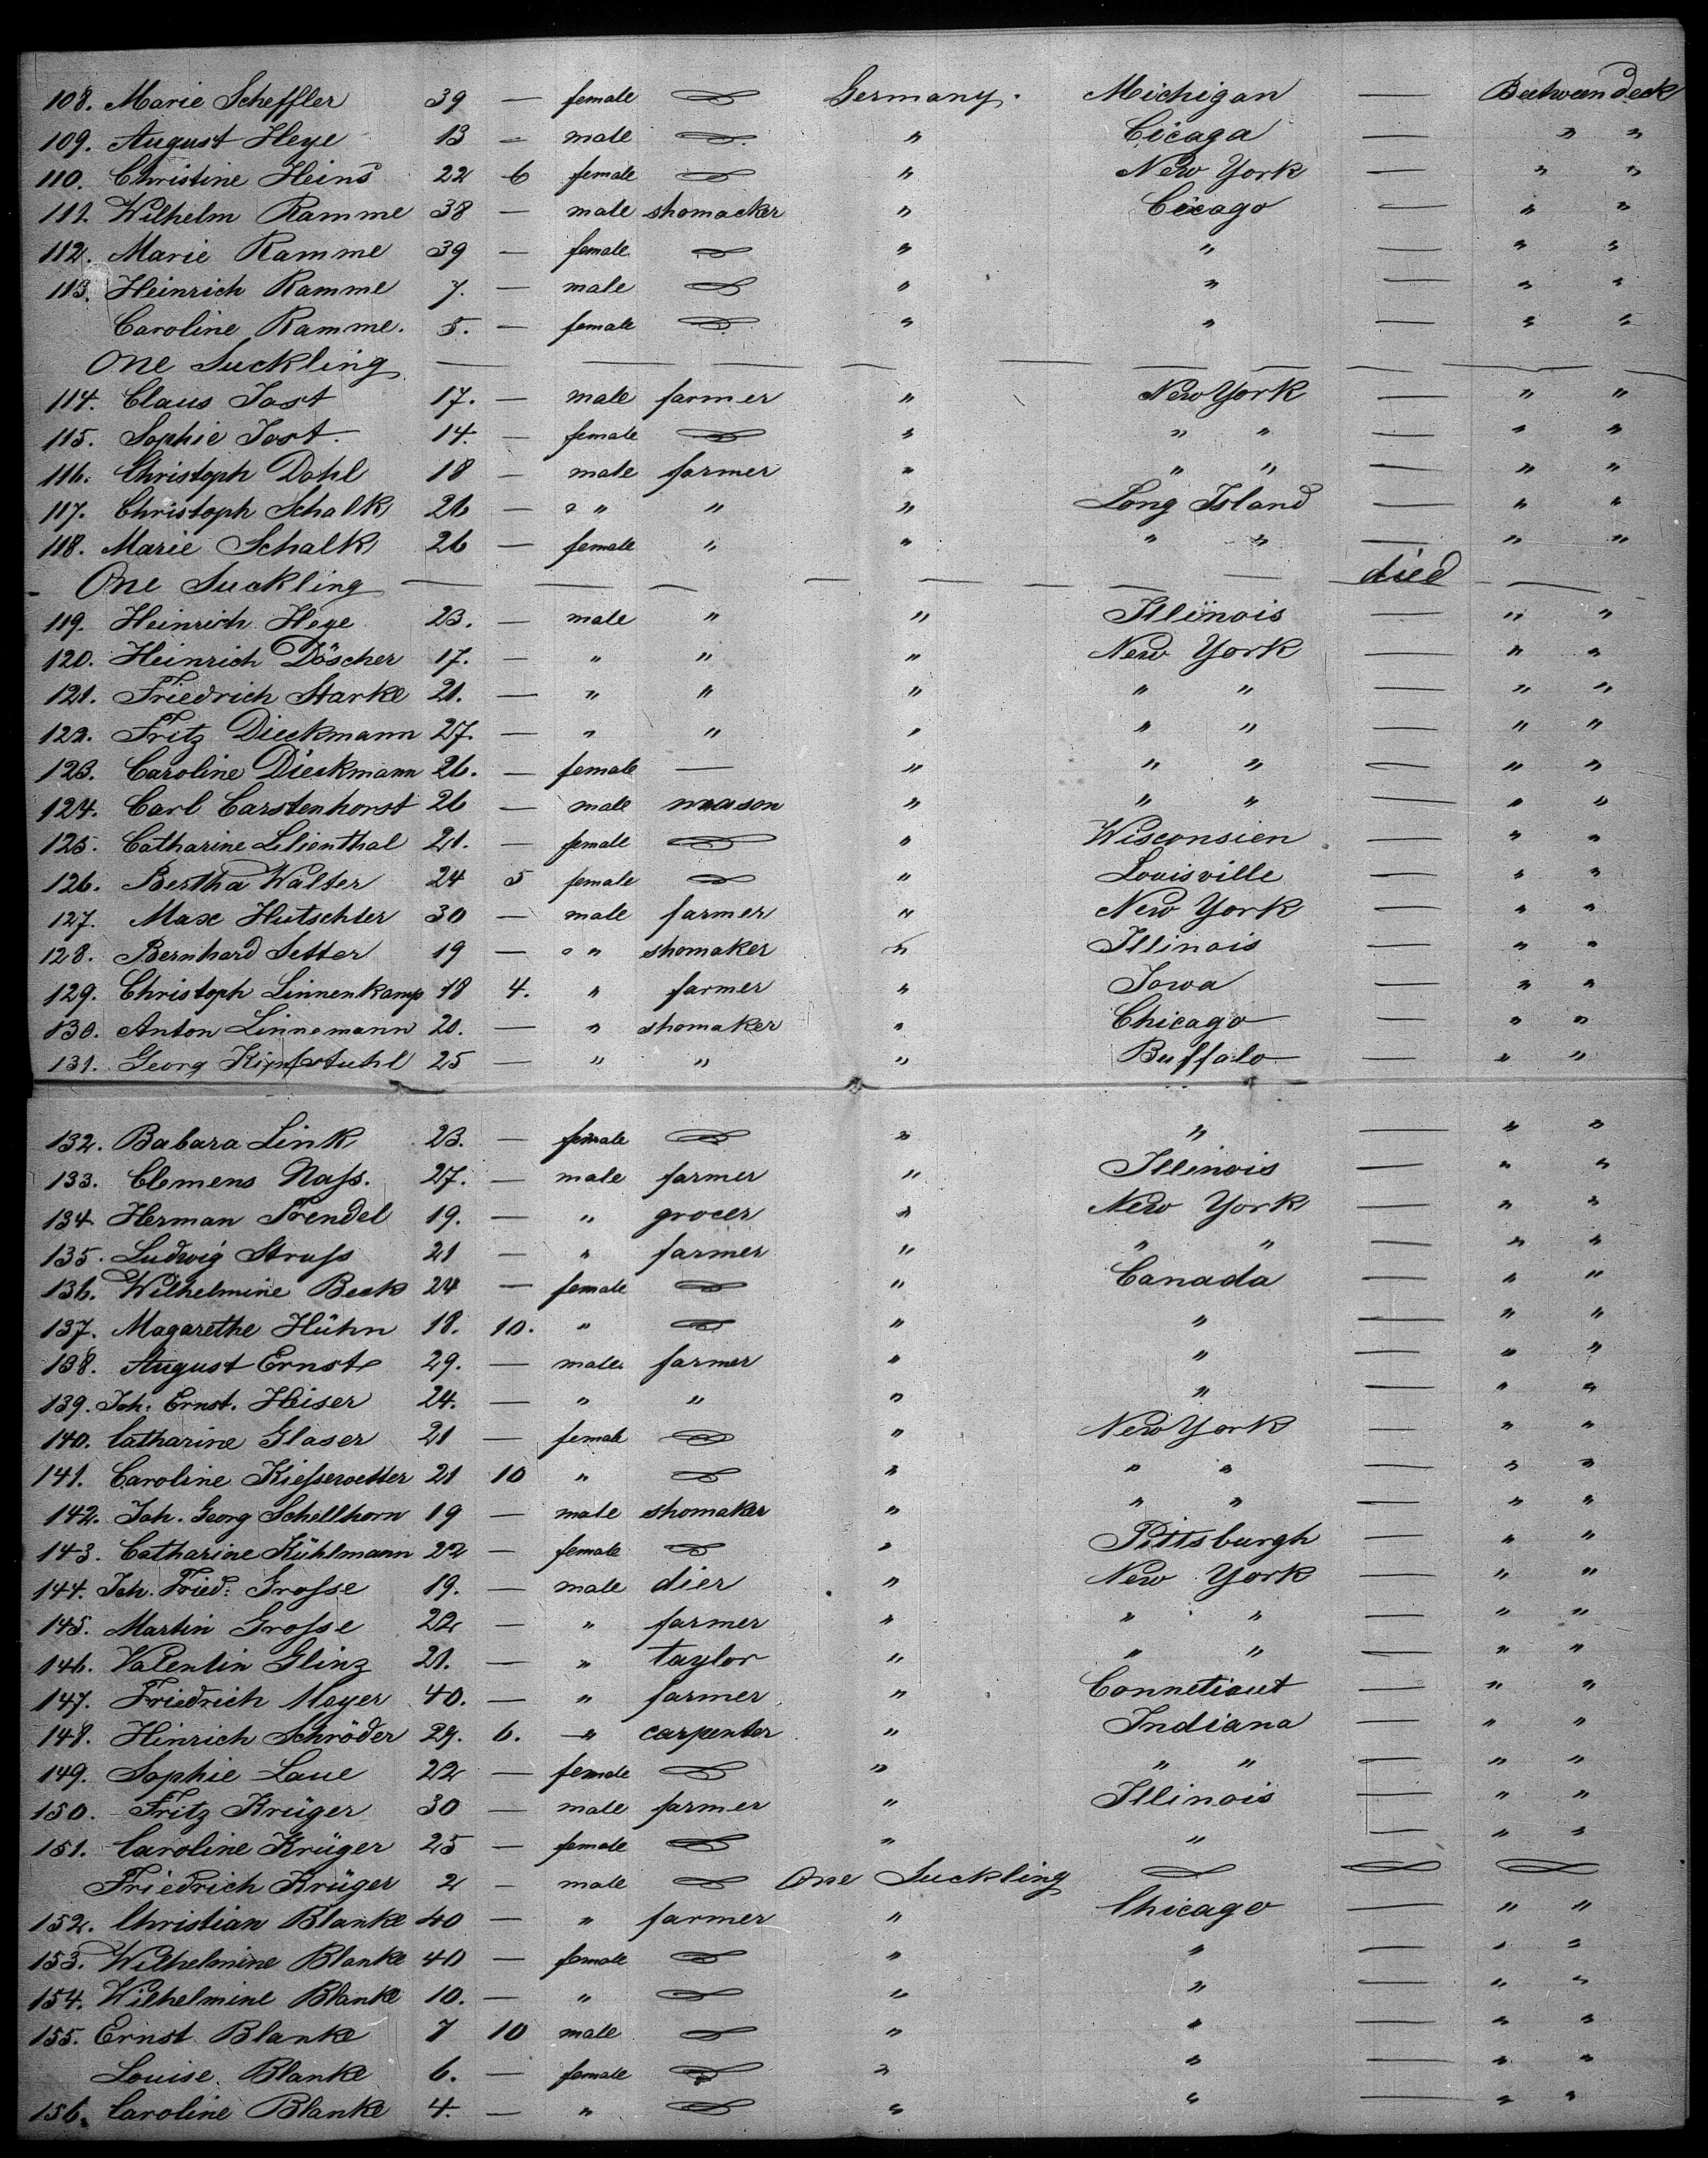 108. Marie Scheffler 39 — female — Germany. Michigan — Beetween deck
109. August Heye 13 — male — " Cicaga — " "
110. Christine Heins 22 6 female — " New York — " "
111. Wilhelm Ramme 38 — male shomacker " Cicago — " "
112. Marie Ramme 39 — female — " " — " "
113. Heinrich Ramme 7. — male — " " — " "
Caroline Ramme. 5. — female — " " — " "
One Suckling — — — — — — — — —
114. Claus Jost 17. — male farmer " New York — " "
115. Sophie Jost. 14. — female — " " " — " "
116. Christoph Dohl 18 — male farmer " " " — " "
117. Christoph Schalk 26 — " " " Long Island — " "
118. Marie Schalk 26 — female " " " " — " "
One Suckling — — — — — — — died — —
119. Heinrich Heye 23. — male " " Illinois — " "
120. Heinrich Döscher 17. — " " " New York — " "
121. Friedrich Starke 21. — " " " " " — " "
122. Fritz Dieckmann 27. — " " " " " — " "
123. Caroline Dieckmann 26. — female — " " " — " "
124. Carl Carstenhorst 26 — male mason " " " — " "
125. Catharine Lilienthal 21. — female — " Wisconsien — " "
126. Bertha Walter 24 5 female — " Louisville — " "
127. Max Hutschter 30 — male farmer " New York — " "
128. Bernhard Setter 19 — " shomaker " Illinois — " "
129. Christoph Linnenkamp 18 4. " farmer " Iowa — " "
130. Anton Linnemann 20. — " shomaker " Chicago — " "
131. Georg Kipfstuhl 25 — " " " Buffalo — " "
132. Babara Link 23. — female — " " — " "
133. Clemens Nass. 27. — male farmer " Illinois — " "
134. Herman Trendel 19. — " grocer " New York — " "
135. Ludwig Struss 21 — " farmer " " " — " "
136. Wilhelmine Beck 24 — female — " Canada — " "
137. Magarethe Hühn 18. 10. " — " " — " "
138. August Ernst 29. — male farmer " " — " "
139. Joh. Ernst. Heiser 24. — " " " " — " "
140. Catharine Glaser 21 — female — " New York — " "
141. Caroline Kiesswetter 21 10 " — " " " — " "
142. Joh. Georg Schellhorn 19 — male shomaker " " " — " "
143. Catharine Kühlmann 22 — female — " Pittsburgh — " "
144. Joh. Fried: Grosse 19. — male dier " New York — " "
145. Martin Grosse 22 — " farmer " " " — " "
146. Valentin Glinz 21. — " taylor " " " — " "
147. Friedrich Meyer 40. — " farmer " Connetiaut — " "
148. Hinrich Schröder 29. 6. " carpenter " Indiana — " "
149. Sophie Laue 22 — female — " " " — " "
150. Fritz Krüger 30 — male farmer " Illinois — " "
151. Caroline Krüger 25 — female — " " — " "
Friedrich Krüger 2 — male — One Suckling — — —
152. Christian Blanke 40 — " farmer " Chicago — " "
153. Wilhelmine Blanke 40 — female — " " — " "
154. Wilhelmine Blanke 10. — " — " " — " "
155. Ernst Blanke 7 10 male — " " — " "
Louise. Blanke 6. — female — " " — " "
156. Caroline Blanke 4. — " — " " — " "